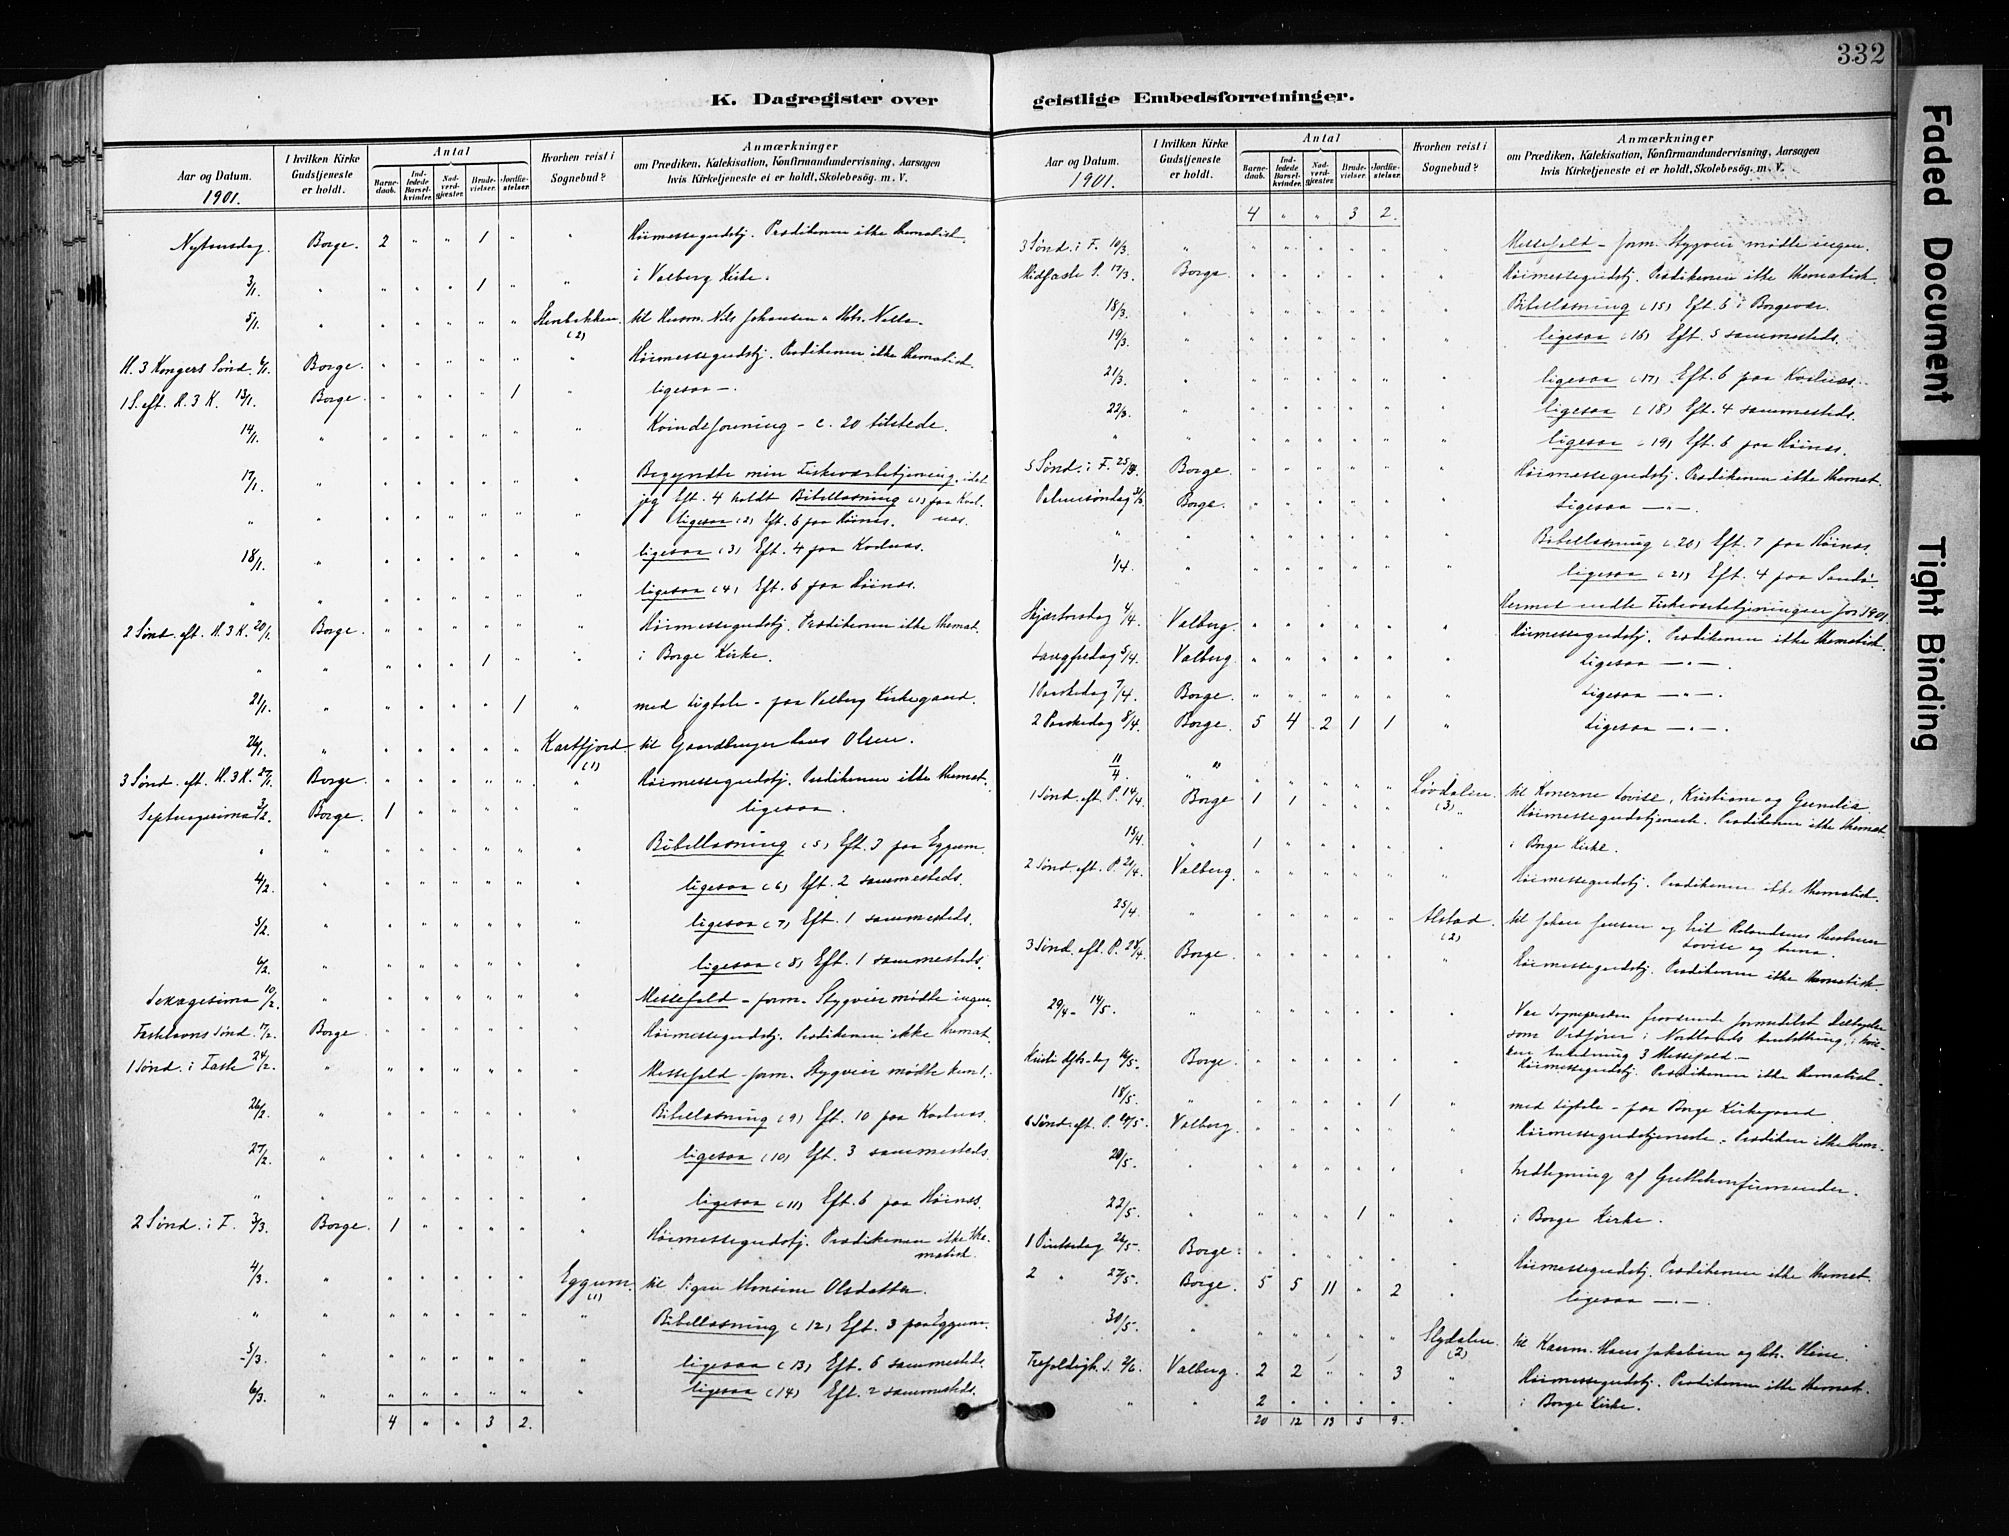 332
K. Dagregister over geistlige Embedsforretninger.
Aar og Datum. 1901.
I hvilken Kirke Gudstjeneste er holdt.
Antal
Barnedaab.
Indledede Barselkvinder.
Nadverdgjester.
Brudevielser.
Jordfæstelser.
Hvorhen reist i Sognebud?
Anmærkninger
om Prædiken, Katekisation, Konfirmandundervisning, Aarsagen
hvis Kirketjeneste ei er holdt, Skolebesög. m. V.
Nytaarsdag. Borge. 2 " " 1 " " Høimessegudstj. Prædikenen ikke thematisk.
3/1. " " " " 1 " " i Valberg Kirke.
5/1. " " " " " " Stenbakken (2) til Husm. Nils Johansen &
H. 3 Kongers Sønd. 6/1. Borge. " " " " " " Høimessegudstj. Prædikenen ikke thematisk.
1 S. eft. H. 3 K. 13/1. Borge. " " " " 1 " ligesaa —.
14/1. " " " " " " " Kvindeforening - c. 20 tilstede.
17/1. " " " " " " " Begyndte min Fiskeværsbetjening, idet
jeg Eft. 4 holdt Bibellæsning (1) paa
" " " " " " " " ligesaa (2) Eft. 6 paa Høinæs.
18/1. " " " " " " " ligesaa (3) Eft. 4 paa
" " " " " " " " ligesaa (4) Eft. 6 paa Høinæs.
2 Sønd. eft. H. 3 K. 20/1. Borge. " " " " " " Høimessegudstj. Prædikenen ikke themat.
" " " " " 1 " " i Borge Kirke.
21/1. " " " " " 1 " med Ligtale - paa Valberg Kirkegaard.
26/1. " " " " " " Kartfjord. (1) til Gaardbruger Olsen.
3 Sønd. eft. H. 3 K. 27/1. Borge. " " " " " " Høimessegudstj. Prædikenen ikke themat.
Septuagesima 3/2. Borge. 1 " " " " " ligesaa
" " " " " " " " Bibellæsning (5) Eft. 3 paa Eggum.
4/2. " " " " " " " ligesaa (6) Eft. 2 sammesteds.
5/2. " " " " " " " ligesaa (7) Eft. 1 sammesteds.
6/2. " " " " " " " ligesaa (8) Eft. 1 sammesteds.
Sexagesima 10/2. " " " " " " " Messefald - form. Stygveir mødte ingen.
Fastelavns Sønd. 17/2. Borge. " " " " " " Høimessegudstj. Prædikenen ikke themat.
1 Sønd. i Faste 24/2. " " " " " " " Messefald - form. Stygveir mødte
26/2. " " " " " " " Bibellæsning (9) Eft. 10 paa
27/2. " " " " " " " ligesaa (10) Eft. 3 sammesteds.
" " " " " " " " ligesaa (11) Eft. 6 paa Høinæs.
2 Sønd. i F. 3/3. Borge. 1 " " " " " Høimessegudstj. Prædikenen ikke thematisk.
4/3. " " " " " " Eggum. (1) til Olsdatter.
" " " " " " " " Bibellæsning (12) Eft. 3 paa Eggum.
5/3. " " " " " " " ligesaa (13) Eft. 6 sammesteds.
6/3. " " " " " " " ligesaa (14) Eft. 2 sammesteds.
4 " " 3 2.
Aar og Datum. 1901.
I hvilken Kirke Gudstjeneste er holdt.
Antal
Barnedaab.
Indledede Barselkvinder.
Nadverdgjester.
Brudevielser.
Jordfæstelser.
Hvorhen reist i Sognebud?
Anmærkninger
om Prædiken, Katekisation, Konfirmandundervisning, Aarsagen
hvis Kirketjeneste ei er holdt, Skolebesög. m. V.
4 " " 3 2.
3 Sønd. i F. 10/3. " " " " " " " Messefald - form. Stygveir mødte ingen.
Midfaste S. 17/3. Borge. " " " " " " Høimessegudstj. Prædikenen ikke thematisk.
18/3. " " " " " " " Bibellæsning (15) Eft. 6 i Borgevær.
19/3. " " " " " " " ligesaa (16) Eft. 5 sammesteds.
21/3. " " " " " " " ligesaa (17) Eft. 6 paa
22/3. " " " " " " " ligesaa (18) Eft. 4 sammesteds.
" " " " " " " " ligesaa (19) Eft. 6 paa Høinæs.
5 Sønd. i F. Borge. " " " " " " Høimessegudstj. Prædikenen ikke themat.
Palmesøndag 31/3. Borge. " " " " " " Ligesaa — " —.
" " " " " " " " Bibellæsning (20) Eft. 7 paa Høinæs.
1/4. " " " " " " " ligesaa (21) Eft. 4 paa Sandø
Hermed endte Fiskeværsbetjeningen for 1901.
Skjærtorsdag 4/4. Valberg. " " " " " " Høimessegudstj. Prædikenen ikke thematisk.
Langfredag 5/4. Valberg. " " " " " " Ligesaa — " —.
1 Paaskedag 7/4. Borge. " " " " " " Ligesaa — " —.
2 Paaskedag 8/4. Borge. 5 4 2 1 1 " Ligesaa — " —.
11/4. " " " " " " Løvdalen. (3) til Konerne Lovise, Kristiane og
1 Sønd. eft. P. 14/4. Borge 1 1 " " " " Høimessegudstjeneste. Prædikenen ikke themat.
15/4. " 1 " " " " " i Borge Kirke.
2 Sønd. eft. P. 21/4. Valberg. " " " " " " Høimessegudstj. Prædikenen ikke thematisk.
25/4. " " " " " " Alstad. (2) til Johan Jensen og
Lovise og
3 Sønd. eft. P. 28/4. Borge. " " " " " " Høimessegudstj. Prædikenen ikke thematisk.
29/4 - 14/5. " " " " " " " Var Sognepresten fraværende
som i Nordlands
Anledning 3 Messefald. -
Kristi Hfts.dag 16/5. Borge. " " " " " " Høimessegudstj. Prædikenen ikke thematisk.
18/5. " " " " " 1 " med Ligtale - paa Borge Kirkegaard
6 Sønd. eft. P. Valberg. " " " " " " Høimessegudstjeneste. Prædiken ikke them.
20/5. " " " " " " " Indtegning af
22/5. " " " " 1 " " i Borge Kirke.
1 Pintsedag 26/5. Borge. " " " " " " Høimessegudstj. Prædikenen ikke themat.
2 " 27/5. Borge. 5 5 11 " 2 " ligesaa — " —.
30/5. " " " " " " Slydalen. (2) til Hans Jakobsen og
Trefoldigh. S. 2/6. Valberg. 2 2 " " 3 " Høimessegudstj. Prædikenen ikke themat.
" " 2 " " " " " i Borge Kirke.
20 12 13 5 9.
Faded Document
Tight Binding